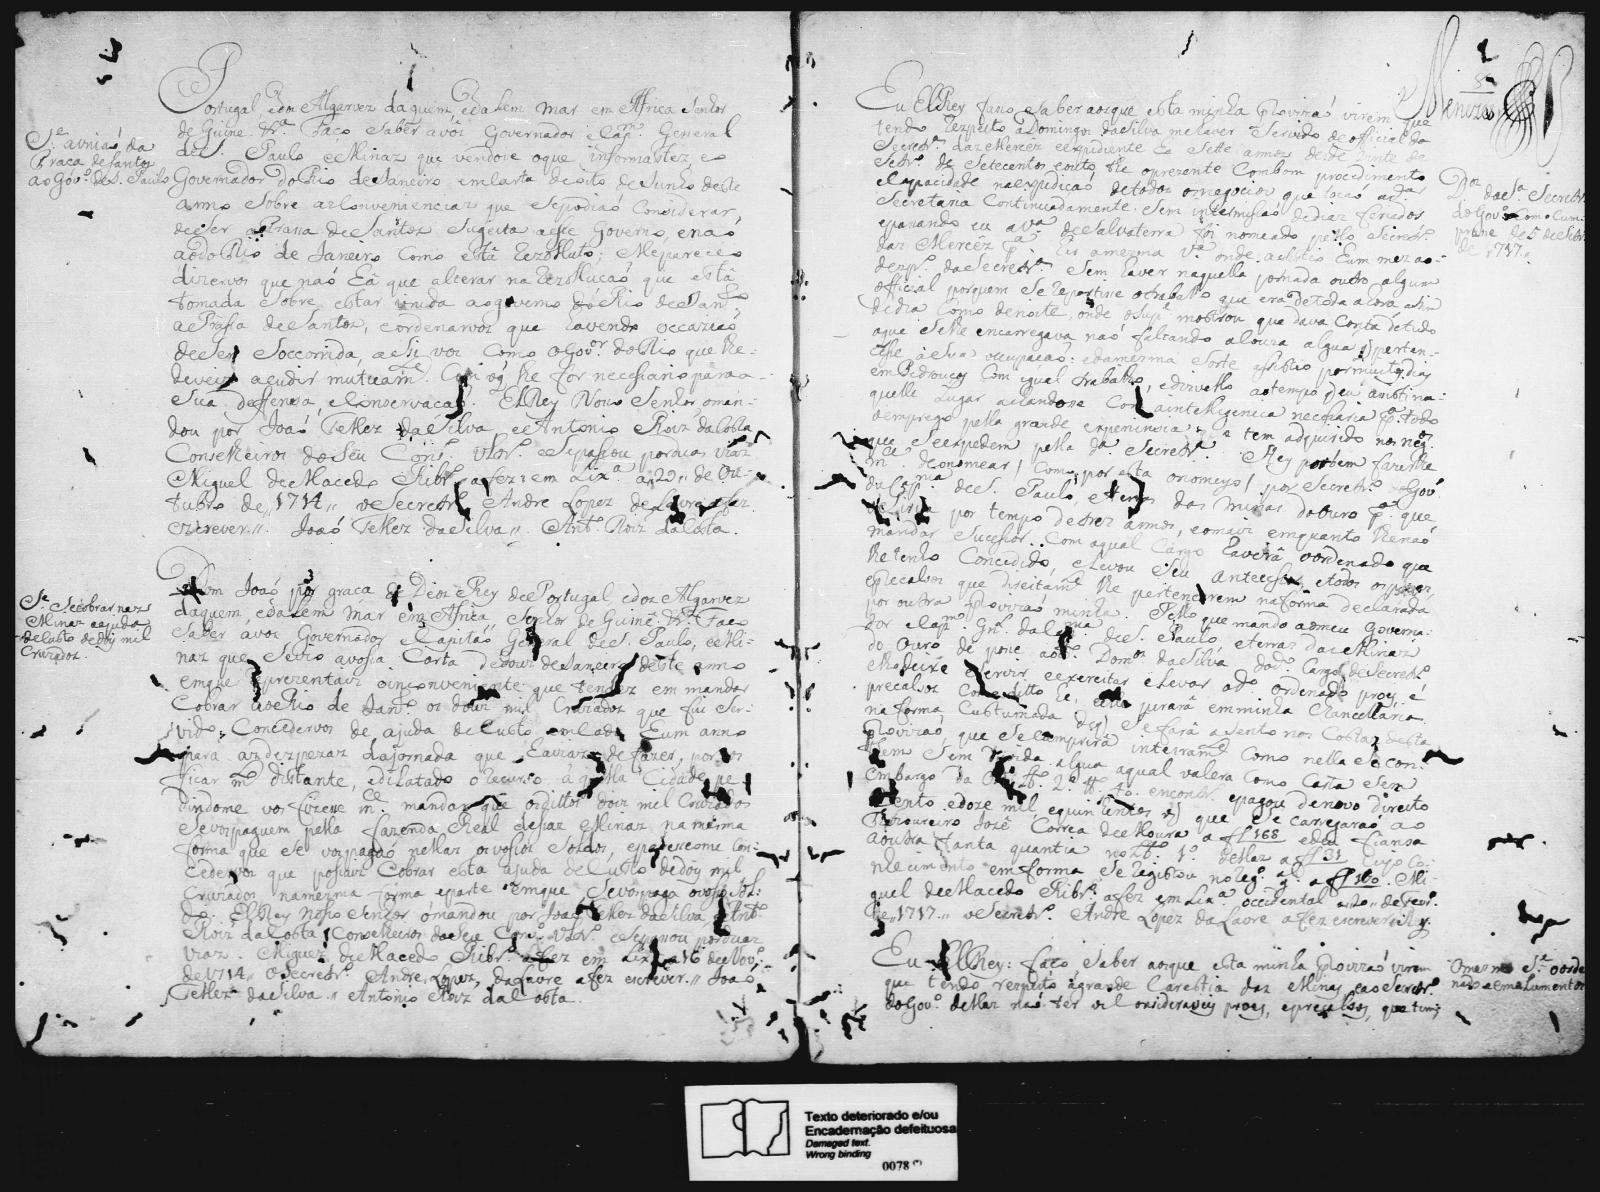 Portugal, e dos Algarves daquem, e dalem mar em Affrica senhor
de Guine &ra. Faço saber a vós Governador e Capm. General
de S. Paulo e Minas que vendose o que informastez, e o
Governador do Rio de Janeiro, em carta de oito de Junho deste
anno sobre as conveniencias que se podiaó considerar,
de ser a Praça de Santos sugeita a esse Governo, e naó
ao do Rio de Janeiro como está rezoluto; Me pareceo
dizervos que naó há que alterar na rezoluçaó que está
tomada sobre estar unida ao governo do Rio de Janro
a Prassa de Santos, e ordenarvos que havendo occaziaó
de ser soccorrida, assi vos como o Govor. do Rio que lhe
deveis acudir mutuamte. Com o q lhe for necessario para a
sua deffensa, e conservacaó. El Rey Nosso Senhor o man-
dou por Joaó Telles da Silva, e Antonio Roiz da Costa
Conselheiros do Seu Cons. Ultr. e se passou por duas vias
Miguel de Macedo Ribr. a fez em Lixa. a 29 de Ou-
tubro de 1714 o Secretr. Andre Lopes de Lavre a fez
escrever. Joaó Telles da Silva. Ant. Roiz da Costa.
Se. a uniaó da
Praca de Santos
ao Govo. de S. Paulo
Dom Joaó por graca de Deos Rey de Portugal e dos Algarves
daquem, e dalem mar em Africa, Senhor de Guine &ra. Faço
saber a vos Governador e Capitaó General de S. Paulo, e Mi-
nas que se vio a vossa Carta de dous de Janeiro deste anno
em que reprezentais o inconveniente que tendes em mandar
cobrar ao Rio de Janro. os dous mil cruzados que fui ser-
vido concedervos de ajuda de custo em cada hum anno
para as despezas da jornada que havias de fazer, por vos
ficar mto. distante, e dilatado o recurso áquella Cidade pe-
dindome vos fizesse mce. mandar que os dittos dois mil cruzados
se vos paguem pella fazenda Real dessas Minas na mesma
forma que se vos pagaó nellas os vossos soldos, e pareceome con-
cedervos que possais cobrar esta ajuda de custo de dois mil
cruzados na mesma forma e parte em que se vos paga o vosso sol-
do. El Rey nosso Senhor o mandou por Joaó Telles da Silva e Ant.
Roiz da Costa Conselheiros do Seu Cons. Ultr. e se passou por duas
vias. Miguel de Macedo Ribr. a fez em Lixa. a 16 de Novo.
de 1714 o Secretr. Andre Lopes da Lavre a fez escrever. Joaó
Telles da Silva. Antonio Roiz da Costa.
Se. se cobrar nas
Minas a ajuda
de custo de dois mil
Cruzados.
5
Menezes
Eu El Rey faço saber aos que esta minha Provizaó virem que
tendo respeito a Domingos da Silva me haver servido de official da
Secretr. das Mercez e expediente há sette annos desde vinte de
Setbr. de setecentos e oito the o prezente com bom procedimento
e capacidade na expediçaó de todos os negocios que tocaó a da.
Secretaria continuadamente sem intermissaó de dias feriados
e passando eu a va. de Salvaterra foi nomeado pello Secretr.
das Mercez pa. hir a mesma va. onde assistio hum mez ao
despo. da Secretr. sem haver naquella jornada outro algum
official por quem se repartisse o trabalho que era de toda a hora assi
de dia como de noite, onde o supe. mostrou que dava conta de tudo
a que se lhe encarregava naó faltando a couza algua q perten-
cesse á sua occupacaó: e da mesma sorte assistio por muitos dias
em Pedroucos com igual trabalho, e
quelle lugar achandose com a inteligencia necessaria pa. todo
o emprego pella grande experiencia, q tem adquirido nos negos.
que se expedem pella da. Secretr. Hey por bem fazerlhe
mce. de o nomear (como por esta o nomeyo) por Secretr. do Govo.
da Capnia de S. Paulo, e terras das Minas do Ouro pa. que
o sirva por tempo de tres annos, e o mais emquanto lhe naó
mandar sucessor. Com o qual cargo haverá o ordenado que
lhe tenho concedido, e levou seu antecessor e todos os proes
e precalsos que direitamte. lhe pertencerem na forma declarada
por outra Provizaó minha. Pello que mando ao meu Governa-
dor e Capm. Gnl. da Capnia de S. Paulo, e terras das Minas
do Ouro de posse ao do. Domos da Silva do do. Cargo de Secretr.
e lho deixe servir, e exercitar e levar o do. ordenado proes, e
precalsos como ditto he, e jurará em minha Chancellaria
na forma custumada de q se fará asento nas costas desta
Provizaó, que se cumprirá inteiramte. como nella se con-
them sem duvida algua a qual valera como Carta sem
embargo da Ord. L. 2. tt. 40. em contr. e pagou de novo direito
cento, e doze mil, e quinhentos rs que se carregaraó ao
Thezoureiro Jozê Correa de Moura a f. 168 e deu fiansa
a outra tanta quantia no L. 1. dellas a f. 31 cujo co-
nhecimento em forma se registou no Rego. gl. a f. 160. Mi-
guel de Macedo Ribr. a fez em Lixa. occidental a de Fevr.
de 1717. o Secretr. Andre Lopes da Lavre a fez escrever
Eu El Rey: faço saber aos que esta minha Provizaó virem
que tendo respeito á grande carestia das Minas e ao Secretr.
do Govo. dellas naó ter os consideraveis proes, e precalsos, que tinha
Pa. da Sa. Secretr.
do Govo. com o Cum-
prase de 5 de Setbr.
de 1717.
O mesmo Se. o orde-
nado e emolumentos
Texto deteriorado e/ou
Encadernação defeituosa
Damaged text.
Wrong binding
0078